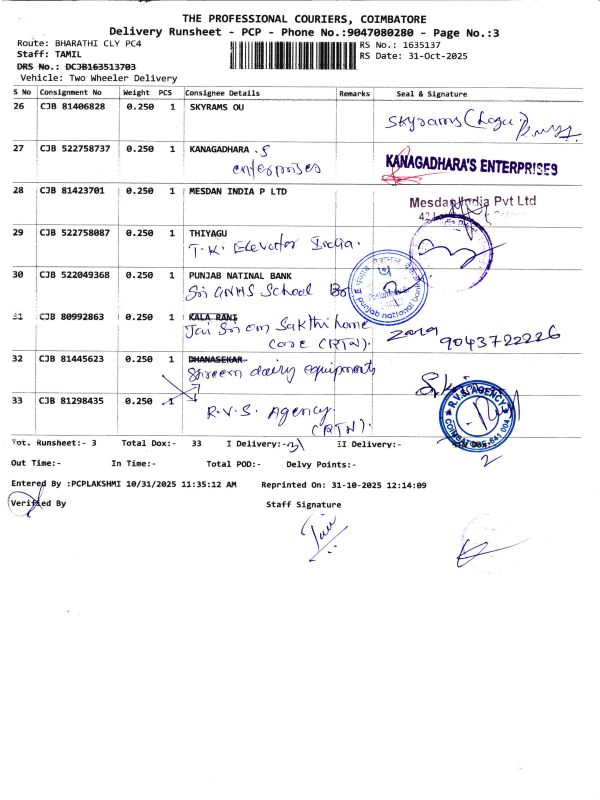 THE PROFESSIONAL COURIERS, COIMBATORE
Delivery Runsheet - PCP - Phone No.:9047080280 - Page No.:3
Route: BHARATHI CLY PC4
RS No.: 1635137
Staff: TAMIL
RS Date: 31-Oct-2025
DRS No.: DCJB163513703
Vehicle: Two Wheeler Delivery
S No Consignment No Weight PCS Consignee Details Remarks Seal & Signature
26 CJB 81406828 0.250 1 SKYRAMS OU
Skyrams
27 CJB 522758737 0.250 1 KANAGADHARA . S
enterprises
KANAGADHARA'S ENTERPRISES
28 CJB 81423701 0.250 1 MESDAN INDIA P LTD
Mesdan India Pvt Ltd
29 CJB 522758087 0.250 1 THIYAGU
T.K. Elevator India.
30 CJB 522049368 0.250 1 PUNJAB NATINAL BANK
Sri GNHS School
punjab national bank
31 CJB 80992863 0.250 1 KALA RANI
Jai Sri om Sakthi home
care (RTN).
zara 9043722226
32 CJB 81445623 0.250 1 DHANASEKAR
Shreem dairy equipments
33 CJB 81298435 0.250 1
R.V.S. Agency
(RTN).
R.V.S. AGENCY
COIMBATORE-641 004
Tot. Runsheet:- 3 Total Dox:- 33 I Delivery:-31 II Delivery:-
2
Out Time:- In Time:- Total POD:- Delvy Points:-
Entered By :PCPLAKSHMI 10/31/2025 11:35:12 AM Reprinted On: 31-10-2025 12:14:09
Verified By Staff Signature